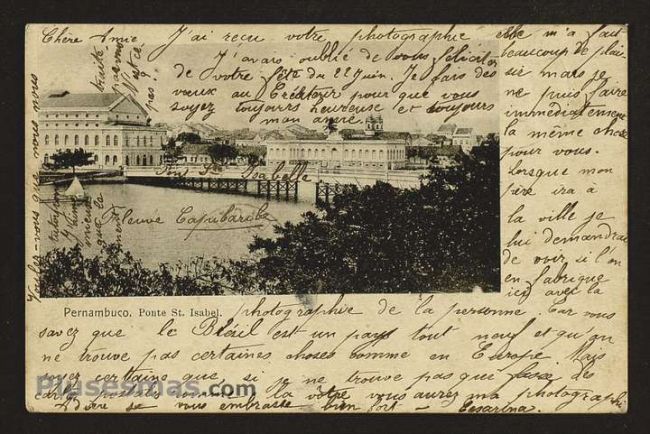 Chère Amie J'ai reçu votre photographie elle m'a fait
J'avais oublié de vous féliciter
de votre fête du 22 Juin. Je fais des
vœux au Créateur pour que vous
soyez toujours heureuse et toujours
mon amie.
beaucoup de plai-
sir mais je
ne puis faire
immédiatement
la même chose
pour vous.
Lorsque mon
père ira à
la ville je
lui demandrai
de voir si l'on
en fabrique
ici avec la
photographie de la personne. Car vous
savez que le Brésil est un pays tout neuf et qu'on
ne trouve pas certaines choses comme en Europe. Mais
soyez certains que, si je ne trouve pas que fasse des
cartes postales comme la votre vous aurez ma photographie
vous embrasse bien fort — Cesarina.
Voulez-vous que nous nous
n'est-ce
pas?
Pont Ste Isabelle
Fleuve Capibaribe
Pernambuco. Ponte St. Isabel.
Plusesmas.com